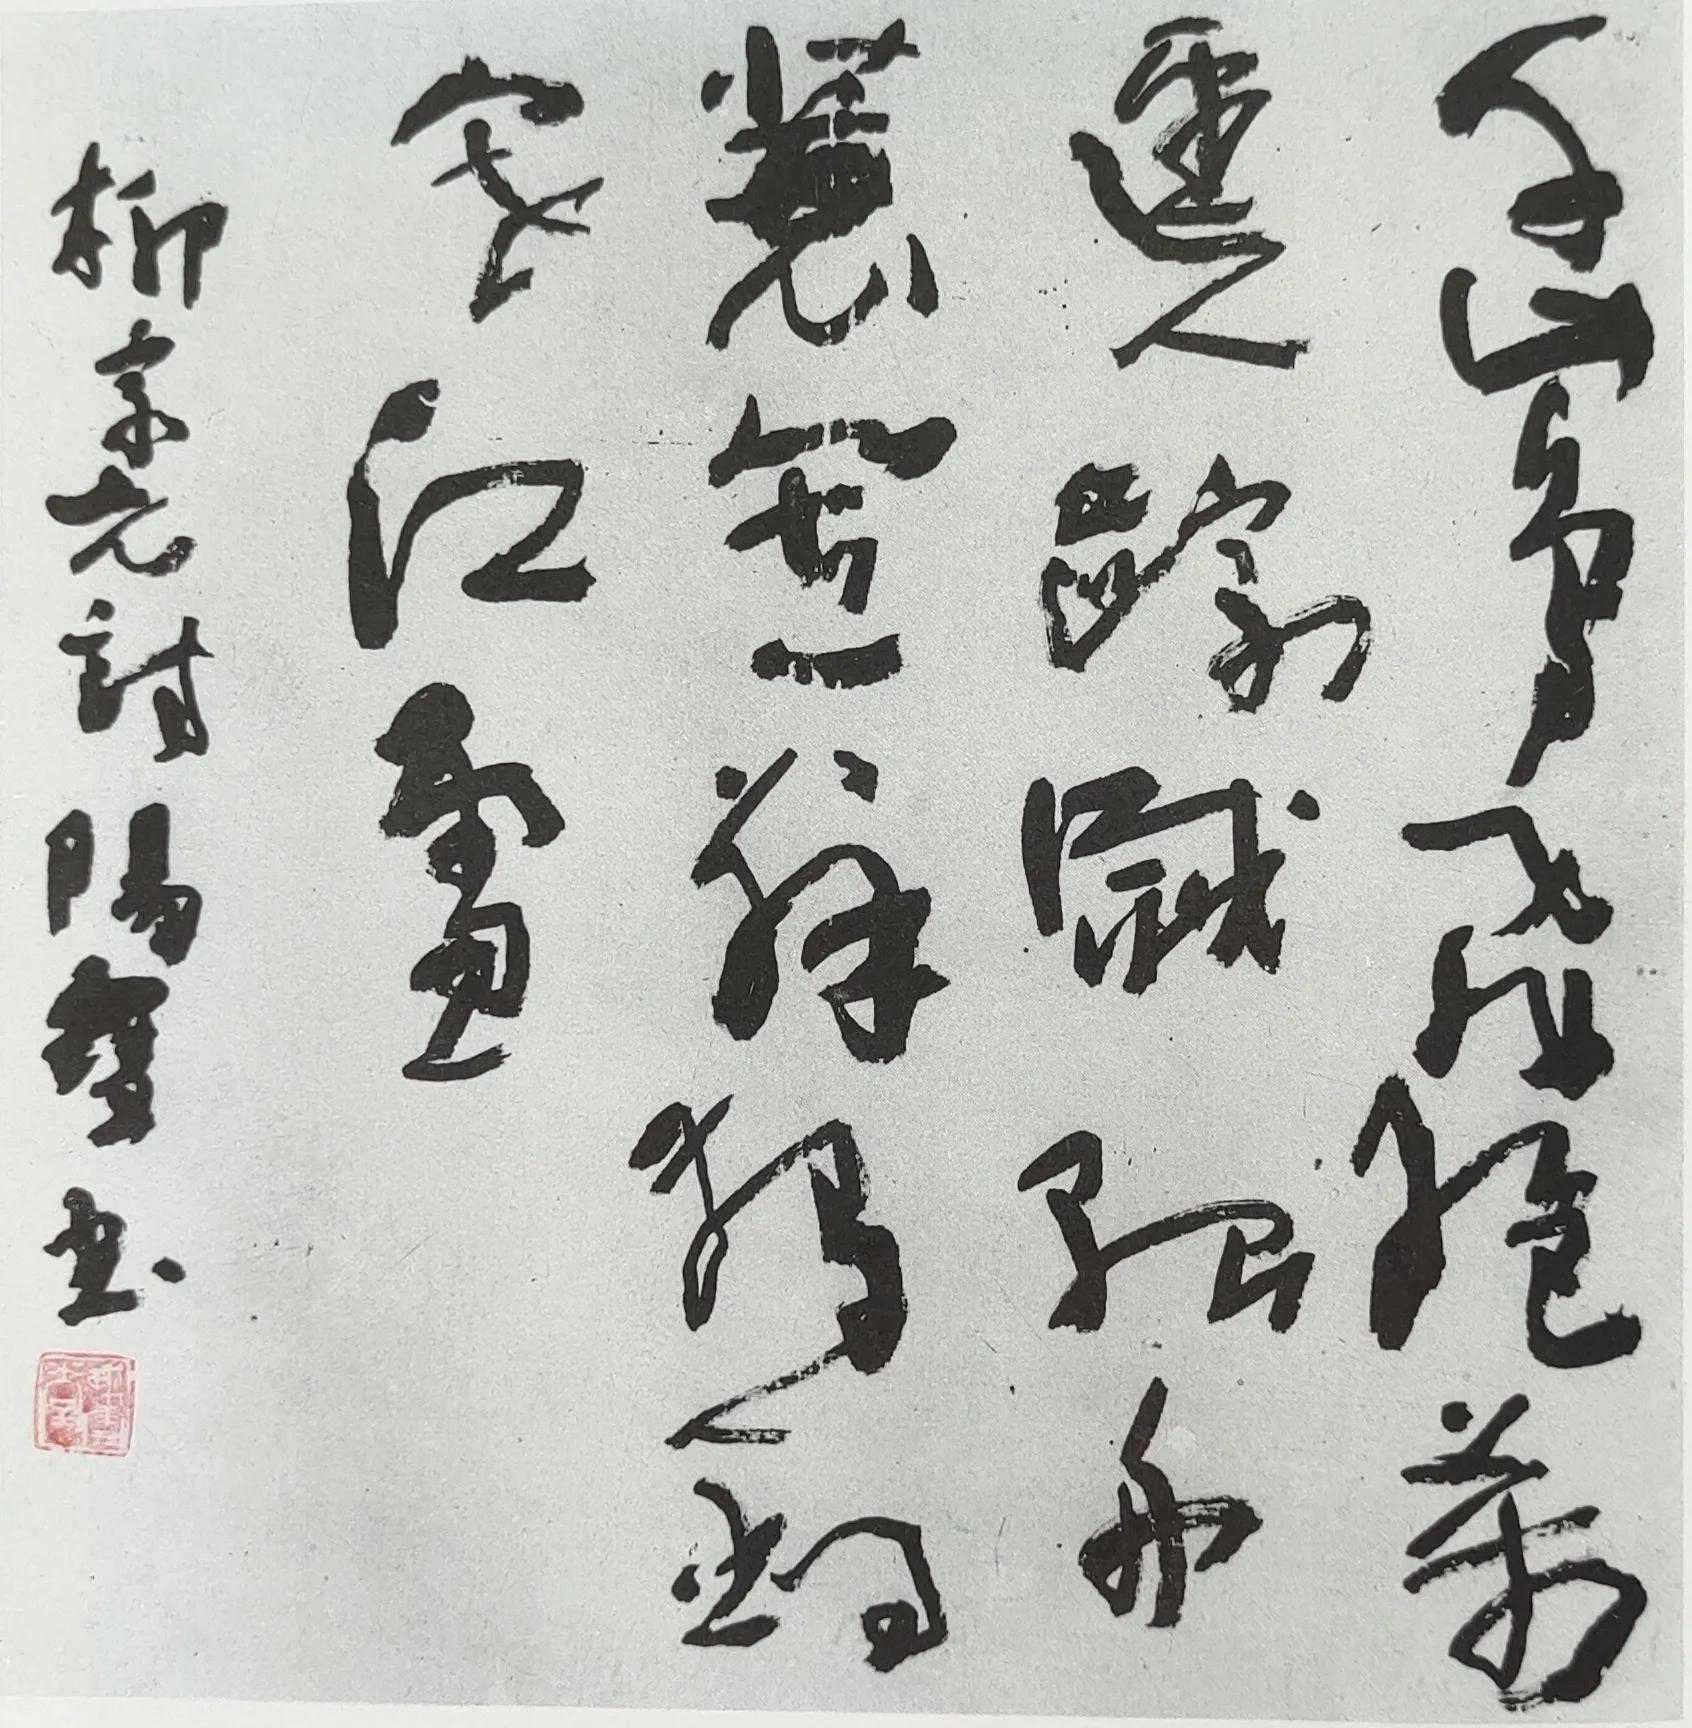 千山鳥飛絕萬
逕人踪滅孤舟
蓑笠翁獨釣
寒江雪
柳宗元詩 陽 书